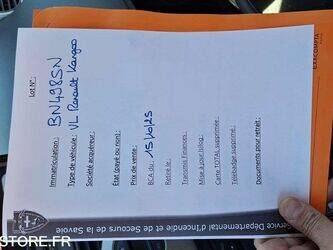 Lot N° :
Immatriculation : BN498SN
Type de véhicule : VL Renault Kangoo
Société acquéreur :
État (payé ou non) :
Prix de vente :
BCA du : 15/10/25
Retiré le :
Transmis Finances :
Mise à jour Isilog :
Carte TOTAL supprimée :
Télébadge supprimé :
Documents pour retrait :
Service Départemental d'Incendie et de Secours de la Savoie
EXACOMPTA
STORE.FR